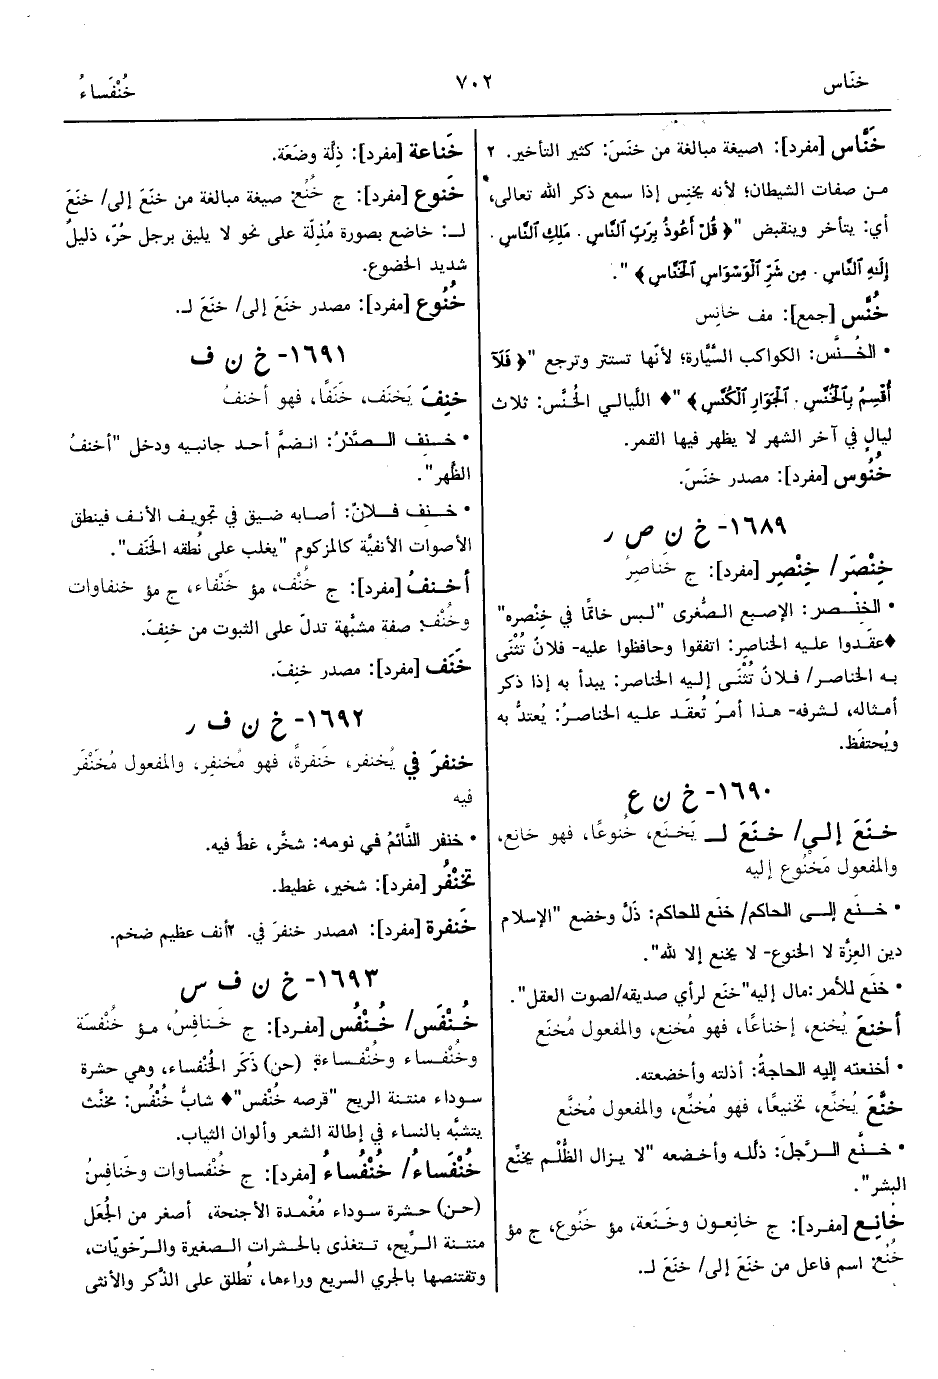 خنَّاس
٧٠٢
خُنْفَساءُ
خَنَّاس [مفرد]: ١صيغة مبالغة من خنَسَ: كثير التأخير. ٢
من صفات الشيطان؛ لأنه يخنِس إذا سمع ذكر الله تعالى،
أي: يتأخر وينقبض "﴿ قُلْ أَعُوذُ بِرَبِّ النَّاسِ . مَلِكِ النَّاسِ .
إِلَهِ النَّاسِ . مِن شَرِّ الْوَسْوَاسِ الْخَنَّاسِ ﴾ ".
خُنَّس [جمع]: مف خانِس
• الخُنَّس: الكواكب السَّيَّارة؛ لأنّها تستتر وترجع "﴿ فَلَآ
أُقْسِمُ بِالْخُنَّسِ . الْجَوَارِ الْكُنَّسِ ﴾ "♦ اللَّيالي الخُنَّس: ثلاث
ليالٍ في آخر الشهر لا يظهر فيها القمر.
خُنُوس [مفرد]: مصدر خنَسَ.
١٦٨٩- خ ن ص ر
خِنْصَر/ خِنْصِر [مفرد]: ج خَناصِرُ
• الخِنْصر: الإصبع الصُّغرى "لبس خاتمًا في خِنْصره"
♦عقَدوا عليه الخناصِر: اتفقوا وحافظوا عليه- فلانٌ تُثْنَى
به الخناصر/ فلانٌ تُثْنَى إليه الخناصر: يبدأ به إذا ذكر
أمثاله، لشرفه- هذا أمرٌ تُعقَد عليه الخناصرُ: يُعتدُّ به
ويُحتفَظ.
١٦٩٠- خ ن ع
خنَعَ إلى/ خنَعَ لـ يَخنَع، خُنوعًا، فهو خانِع،
والمفعول مَخنُوع إليه
• خنَع إلى الحاكم/ خنَع للحاكم: ذلَّ وخضع "الإسلام
دين العِزَّة لا الخنوع- لا يخنع إلا لله".
• خنَع للأمر: مال إليه"خنَع لرأي صديقه/لصوت العقل".
أخنعَ يُخنع، إخناعًا، فهو مُخنِع، والمفعول مُخنَع
• أخنعته إليه الحاجةُ: أذلته وأخضعته.
خنَّعَ يُخنِّع، تخنيعًا، فهو مُخنِّع، والمفعول مُخنَّع
• خنَّع الرَّجلَ: ذلَّله وأخضعه "لا يزال الظُّلْم يخنِّع
البشر".
خانِع [مفرد]: ج خانِعون وخَنَعة، مؤ خَنُوع، ج مؤ
خُنُع: اسم فاعل من خنَعَ إلى/ خنَعَ لـ.
خَناعة [مفرد]: ذِلَّة وضَعَة.
خَنوع [مفرد]: ج خُنُع: صيغة مبالغة من خنَعَ إلى/ خنَعَ
لـ: خاضع بصورة مُذِلّة على نحو لا يليق برجل حُرّ، ذليلٌ
شديد الخضوع.
خُنُوع [مفرد]: مصدر خنَعَ إلى/ خنَعَ لـ.
١٦٩١- خ ن ف
خنِفَ يَخنَف، خَنَفًا، فهو أخنفُ
• خنِف الصَّدْرُ: انضمَّ أحد جانبيه ودخل "أخنفُ
الظَّهر".
• خنِف فلانٌ: أصابه ضيق في تجويف الأنف فينطق
الأصوات الأنفيَّة كالمزكوم "يغلب على نُطقه الخَنَف".
أخنفُ [مفرد]: ج خُنْف، مؤ خَنْفاء، ج مؤ خنفاوات
وخُنْف: صفة مشبَّهة تدلّ على الثبوت من خنِفَ.
خَنَف [مفرد]: مصدر خنِفَ.
١٦٩٢- خ ن ف ر
خنفرَ في يُخنفر، خَنفرةً، فهو مُخنفِر، والمفعول مُخَنْفَر
فيه
• خنفر النَّائمُ في نومه: شخَّر، غطَّ فيه.
تخنْفُر [مفرد]: شخير، غطيط.
خَنفرة [مفرد]: ١مصدر خنفرَ في. ٢أنف عظيم ضخم.
١٦٩٣- خ ن ف س
خُنْفَس/ خُنْفُس [مفرد]: ج خَنافِسُ، مؤ خُنْفُسَة
وخُنْفَساء وخُنْفَساءة: (حن) ذَكَر الخُنْفساء، وهي حشرة
سوداء منتنة الريح "قرصه خُنْفس"♦ شابٌّ خُنْفُس: مخنَّث
يتشبَّه بالنساء في إطالة الشعر وألوان الثياب.
خُنْفَساءُ/ خُنْفُساءُ [مفرد]: ج خُنْفَساوات وخَنافِسُ
(حن) حشرة سوداء مُغْمدة الأجنحة، أصغر من الجُعَل
منتنة الرِّيح، تتغذى بالحشرات الصغيرة والرَّخويّات،
وتقتنصها بالجري السريع وراءها، تُطلق على الذَّكر والأنثى